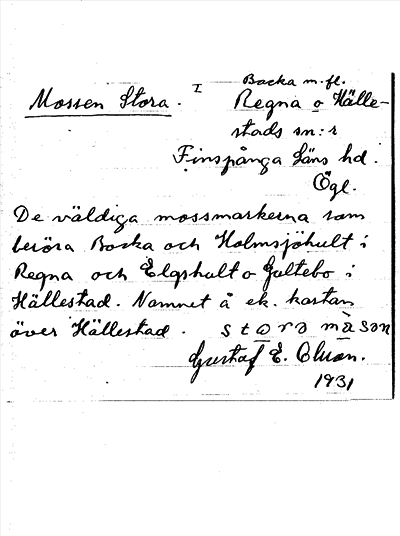 Backa m. fl.
Mossen Stora. I Regna o Hälle-
stads sn:r
Finspånga Läns hd.
Ögl.
De väldiga mossmarkerna som
beröra Backa och Holmsjöhult i
Regna och Elgshult o Galtebo i
Hällestad. Namnet å ek. kartan
över Hällestad. stora måsan
Gustaf E. Olsson.
1931